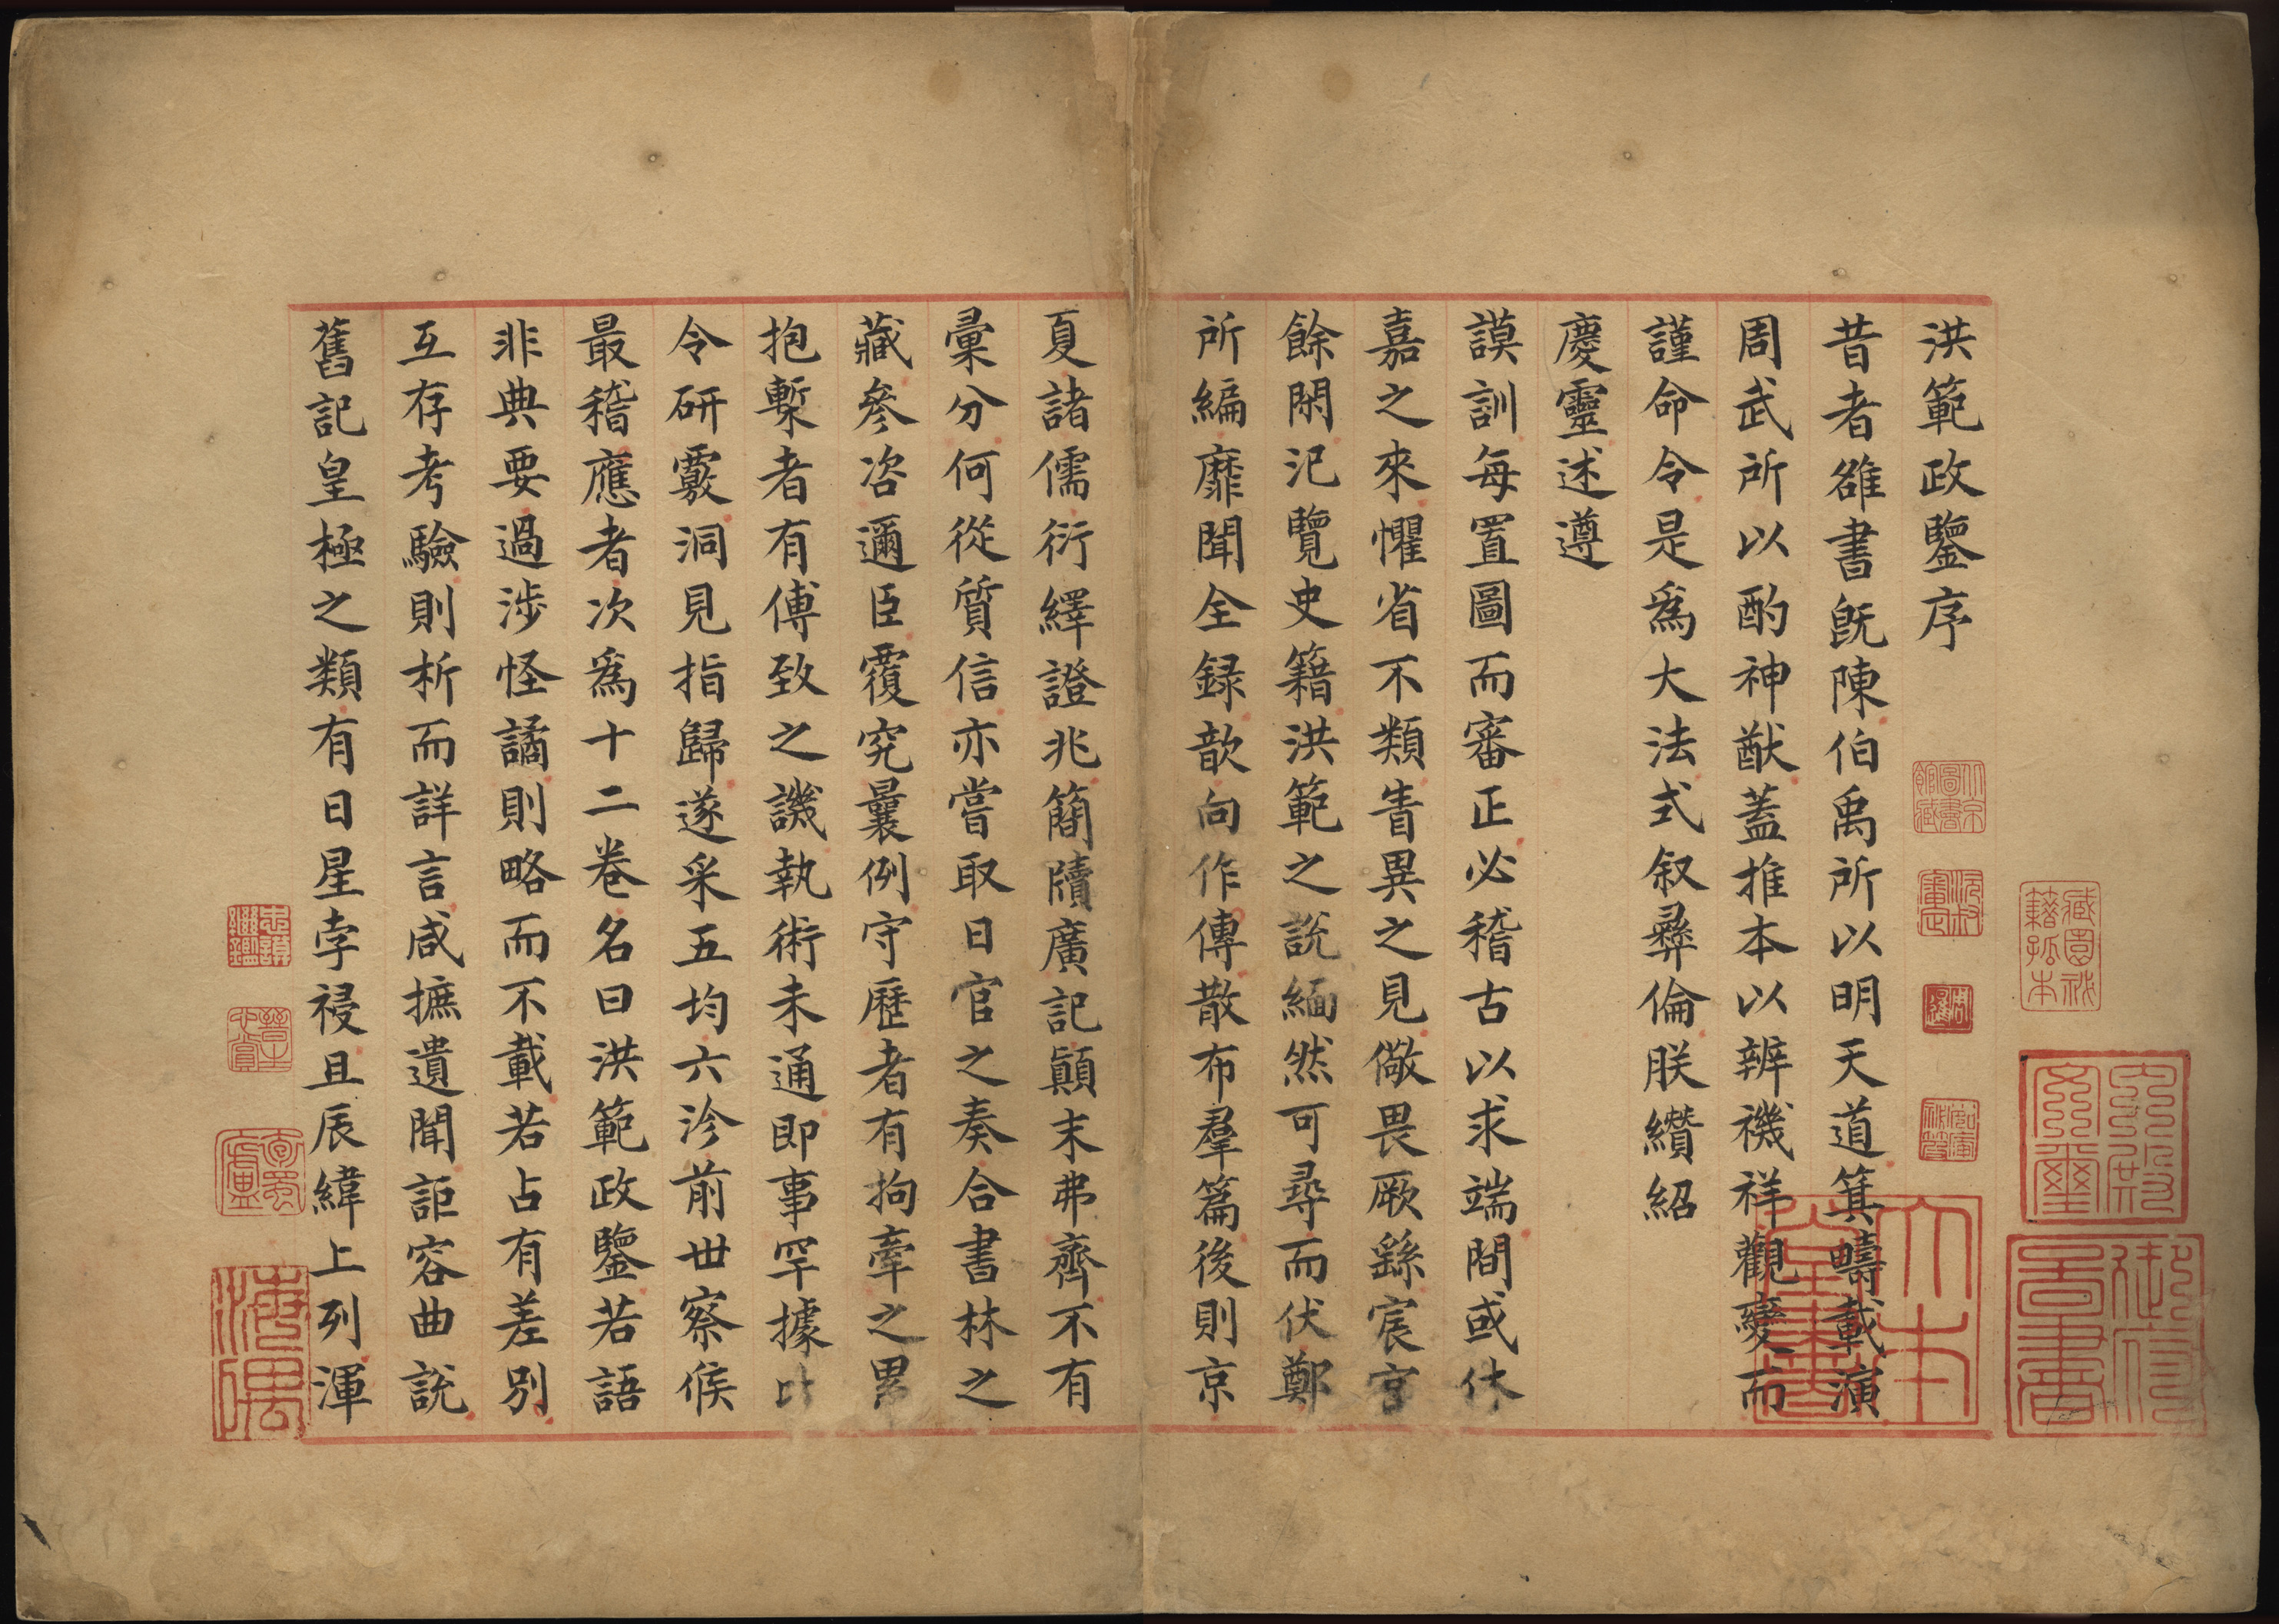 洪範政鑒序
昔者雒書旣陳伯禹所以明天道箕疇載演
周武所以酌神猷蓋推本以辨禨祥觀變而
謹命令是爲大法式叙彝倫朕纘紹
慶靈述遵
謨訓每置圖而審正必稽古以求端間或休
嘉之來懼省不類眚異之見儆畏厥繇宸
餘閑汜覽史籍洪範之說緬然可尋而伏鄭
所編靡聞全録歆向作傳散布羣篇後則京
夏諸儒衍繹證兆簡牘廣記顚末弗齊不有
彙分何從質信亦嘗取日官之奏合書林之
藏參咨邇臣覆究曩例守歷者有拘牽之累
抱槧者有傅致之譏執術未通即事罕據比
令研覈洞見指歸遂采五均六沴前世察候
最稽應者次爲十二卷名曰洪範政鑒若語
非典要過涉怪譎則略而不載若占有差別
互存考驗則析而詳言咸摭遺聞詎容曲說
舊記皇極之類有日星孛祲且辰緯上列渾
北京圖書館藏
沅叔審定
周暹
雙鑑樓
藏園祕籍孤本
內殿文璽
御府圖書
大本堂書
忠謨繼鑑
晉生心賞